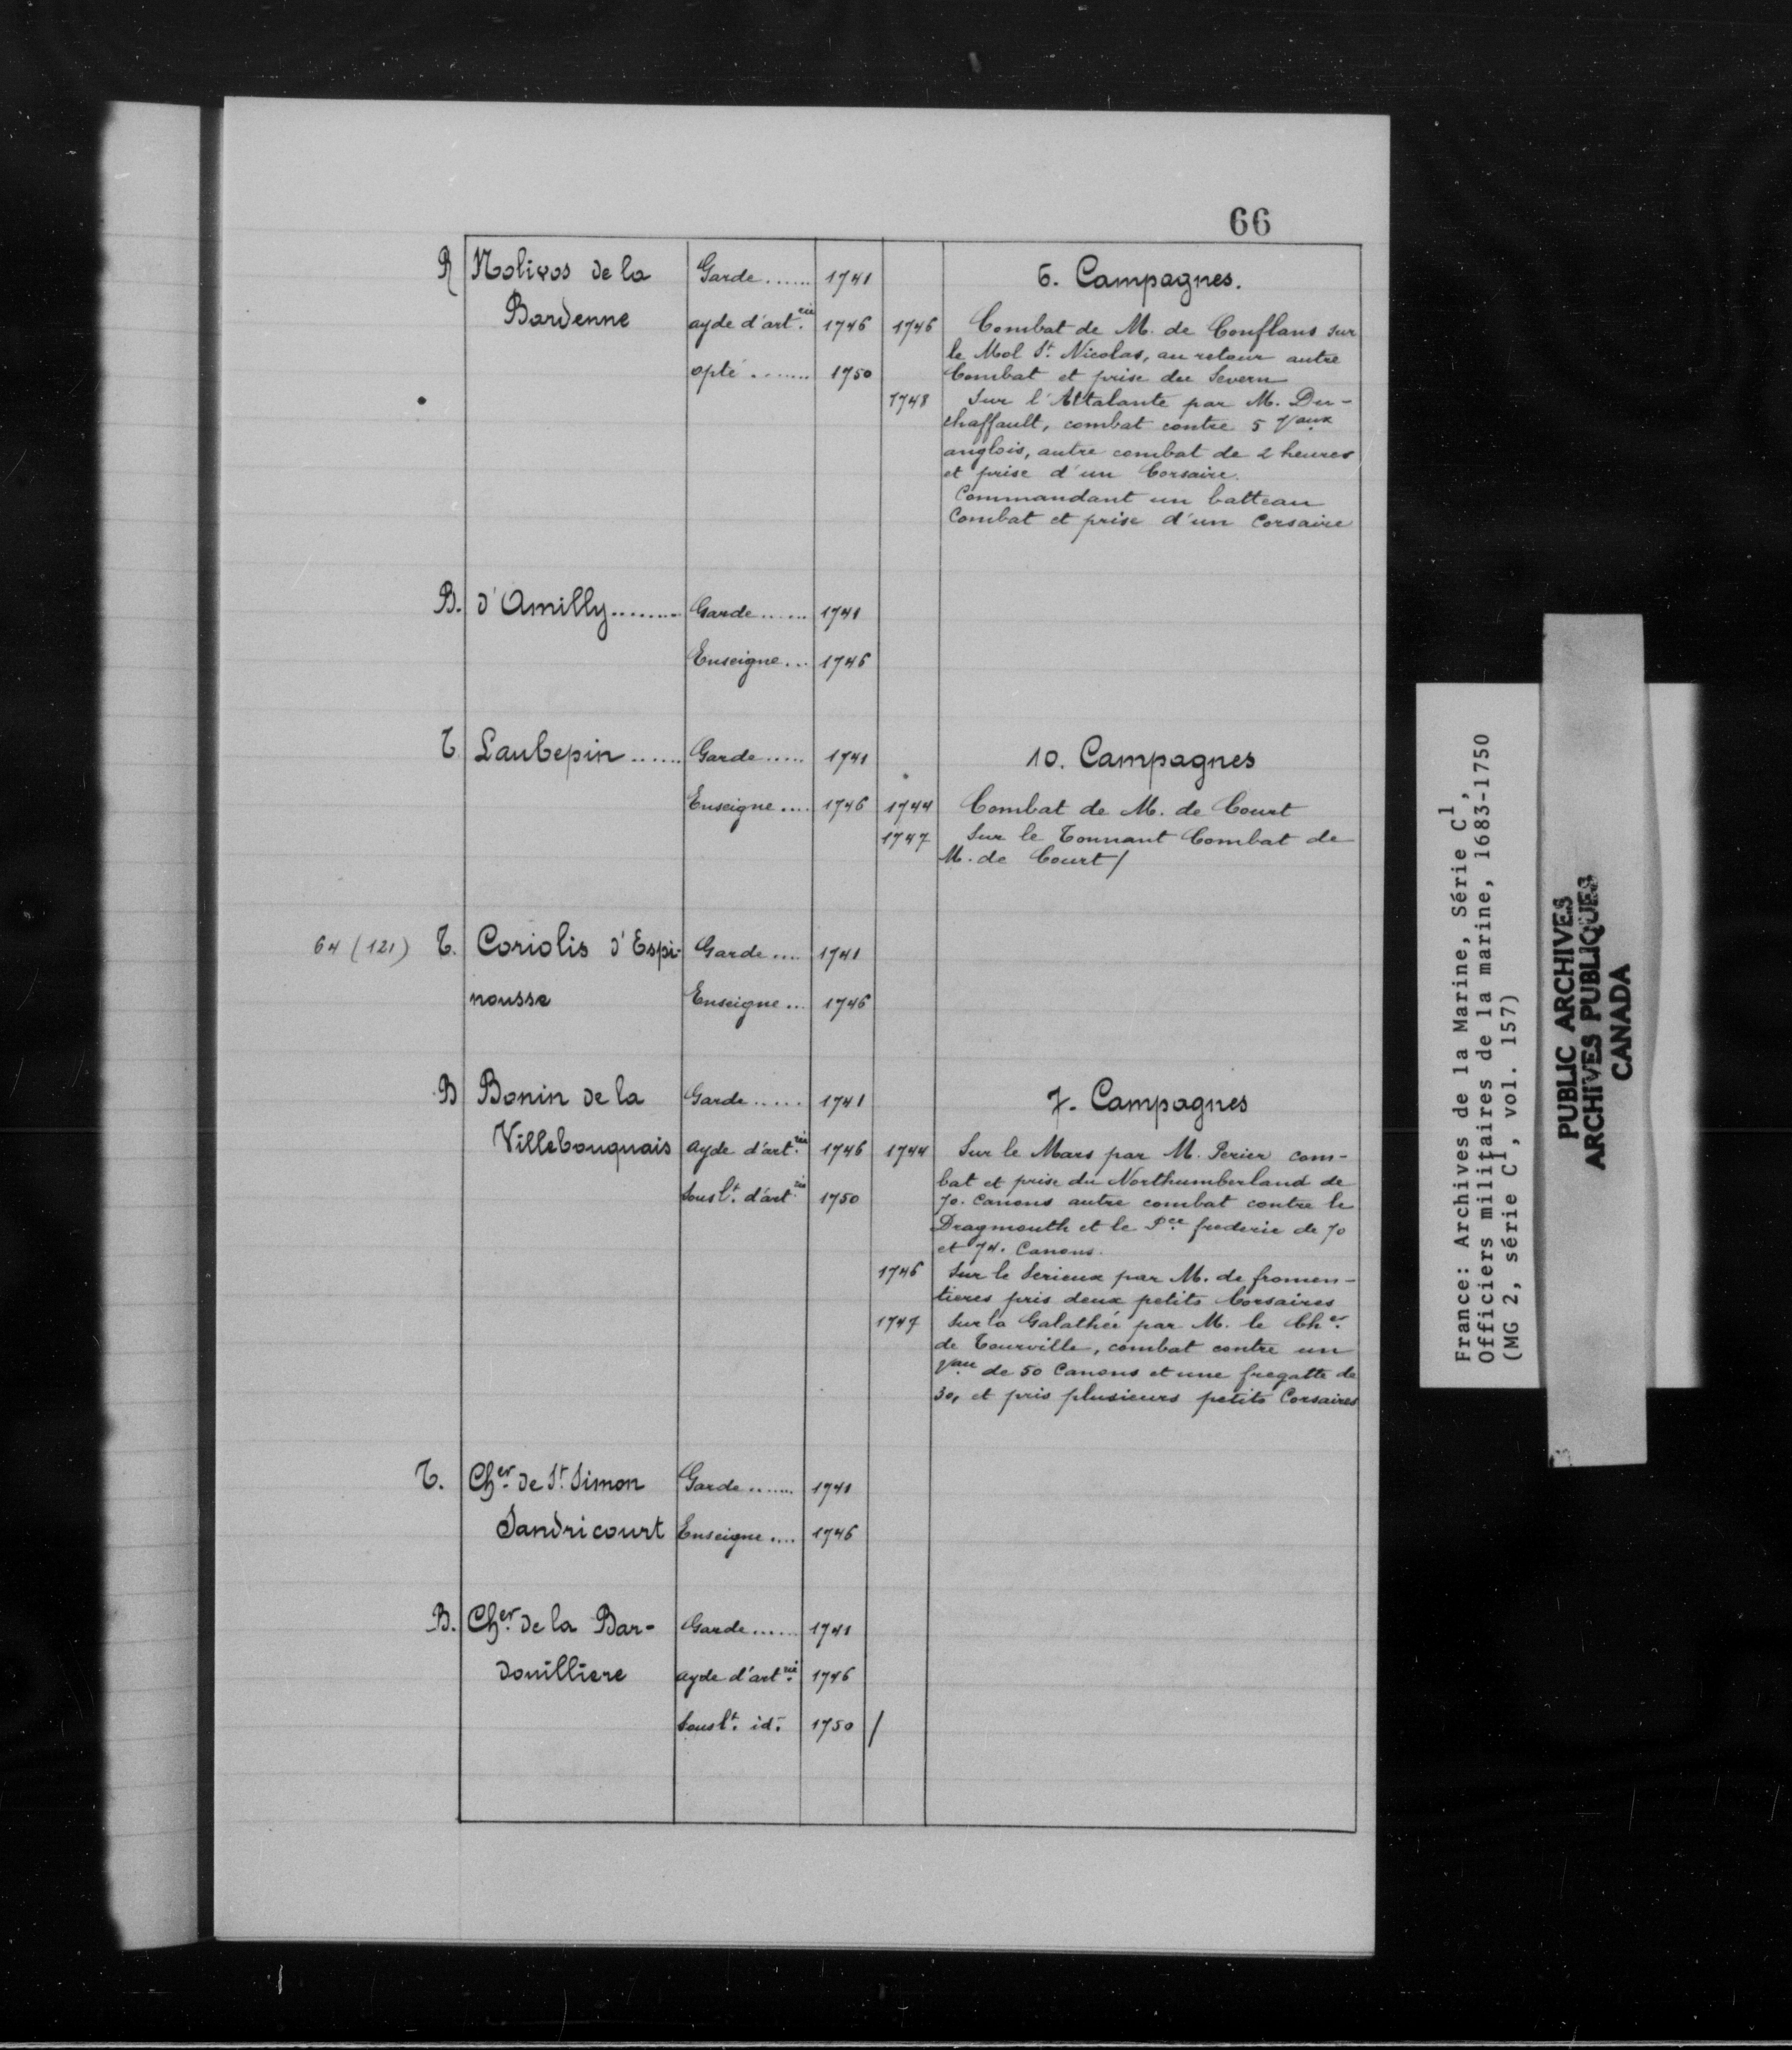 66
R Nolivos de la Garde...... 1741 6. Campagnes.
Bardenne ayde d'art.rie 1746 1746 Combat de M. de Conflans sur
le Mol St. Nicolas, au retour autre
opté ........ 1750 Combat et prise du Severn
1748 Sur l'Attalante par M. Du-
chaffault, combat contre 5 Vaux
anglois, autre combat de 2 heures
et prise d'un Corsaire.
Commandant un batteau
Combat et prise d'un Corsaire
B. d'Amilly......... Garde...... 1741
Enseigne... 1746
T. Laubepin...... Garde..... 1741 10. Campagnes
Enseigne.... 1746 1744 Combat de M. de Court
1747 Sur le Tonnant Combat de
M. de Court /
64 (121) T. Coriolis d'Espi- Garde.... 1741
nousse Enseigne... 1746
B Bonin de la Garde...... 1741 7. Campagnes
Villebouquais ayde d'art.rie 1746 1744 Sur le Mars par M. Perier com-
bat et prise du Northumberland de
Souslt. d'art.rie 1750 70. Canons autre combat contre le
Dragmouth et le Pce frederic de 70
et 74. Canons.
1746 Sur le Serieux par M. de fromen-
tieres pris deux petits Corsaires
1747 Sur la Galathée par M. le Cher.
de Tourville, combat contre un
Vau de 50 Canons et une fregatte de
30, et pris plusieurs petits Corsaires
T. Cher. de St. Simon Garde....... 1741
Sandricourt Enseigne.... 1746
B. Cher. de la Bar- Garde...... 1741
douilliere ayde d'art.rie 1746
Souslt. id. 1750 /
France: Archives de la Marine, Série C1,
Officiers militaires de la marine, 1683-1750
(MG 2, série C1, vol. 157)
PUBLIC ARCHIVES
ARCHIVES PUBLIQUES
CANADA